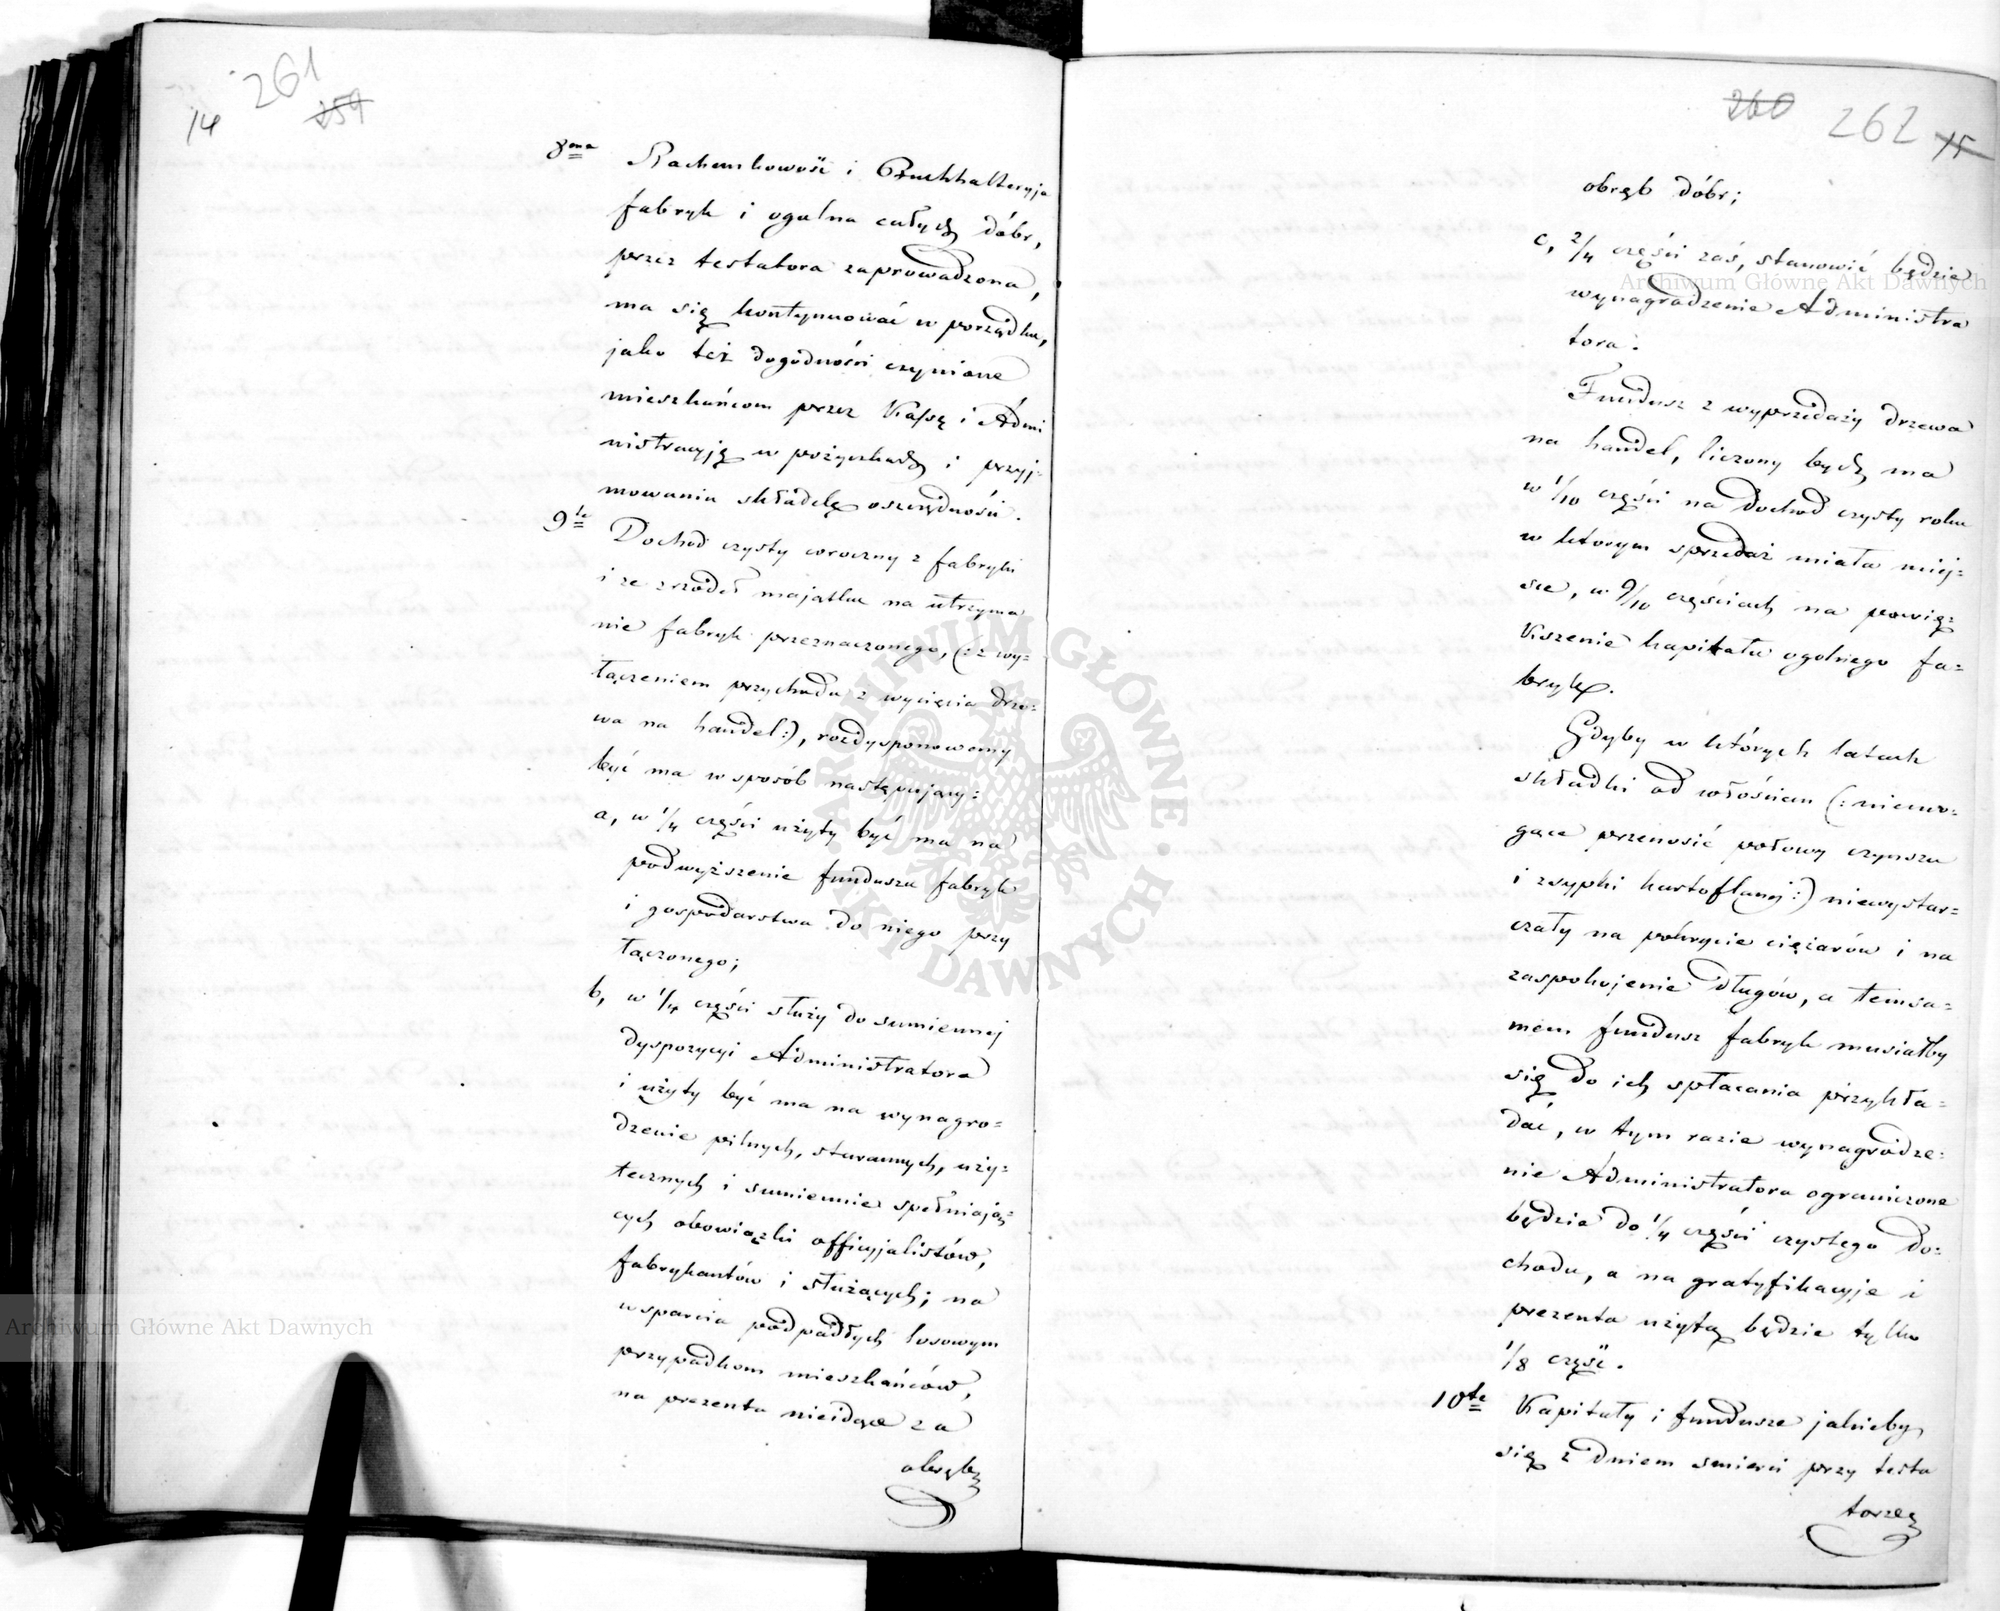 14
261
259
8ma Rachunkowość i Buchhalteryja
fabryk i ogulna całych dóbr,
przez testatora zaprowadzona,
ma się kontynuować w porządku,
jako też dogodności czynione
mieszkańcom przez Kassę i Admi
nistracyję w pożyczkach i przyj-
mowaniu składek oszczędności.
9te Dochod czysty coroczny z fabryki
i ze zrzódeł majątku na utrzyma
nie fabryk przeznaczonego, (:z wy-
łączeniem przychodu z wycięcia drze-
wa na handel:), rozdysponowemy
być ma w sposób następujący:
a, w 1/4 części użyty być ma na
podwyższenie funduszu fabryk
i gospodarstwa do niego przy
łączonego;
b, w 1/4 części służy do sumiennej
dyspozycyi Administratora
i użyty być ma na wynagro-
dzenie pilnych, starannych, uży-
tecznych i sumiennie spełniają-
cych obowiązki officyjalistów,
fabrykantów i służących; na
wsparcia podpadłych losowym
przypadkom mieszkańców,
na prezenta nieidące za
obręb
260
262
15
obręb dóbr;
c, 2/4 części zaś, stanowić będzie
wynagrodzenie Administra
tora.
Fundusz z wyprzedaży drzewa
na handel, liczony być ma
w 1/10 części na dochod czysty roku
w ktorym sprzedaż miała miej-
sce, w 9/10 częściach na powię-
kszenie kapitału ogolnego fa-
bryk.
Gdyby w których latach
składki od włościan (:niemo-
gące przenosić połowy czynszu
i zsypki kartoflanej:) niewystar-
czały na pokrycie ciężarów i na
zaspokojenie długów, a temsa-
mem fundusz fabryk musiałby
się do ich spłacania przykła-
dać, w tym razie wynagrodze-
nie Administratora ograniczone
będzie do 1/4 części czystego do-
chodu, a na gratyfikacyje i
prezenta użytą będzie tylko
1/8 część.
10te Kapitały i fundusze jakieby
się z dniem smierci przy testa
torze
Archiwum Główne Akt Dawnych
Archiwum Główne Akt Dawnych
ARCHIWUM GŁÓWNE • AKT DAWNYCH •